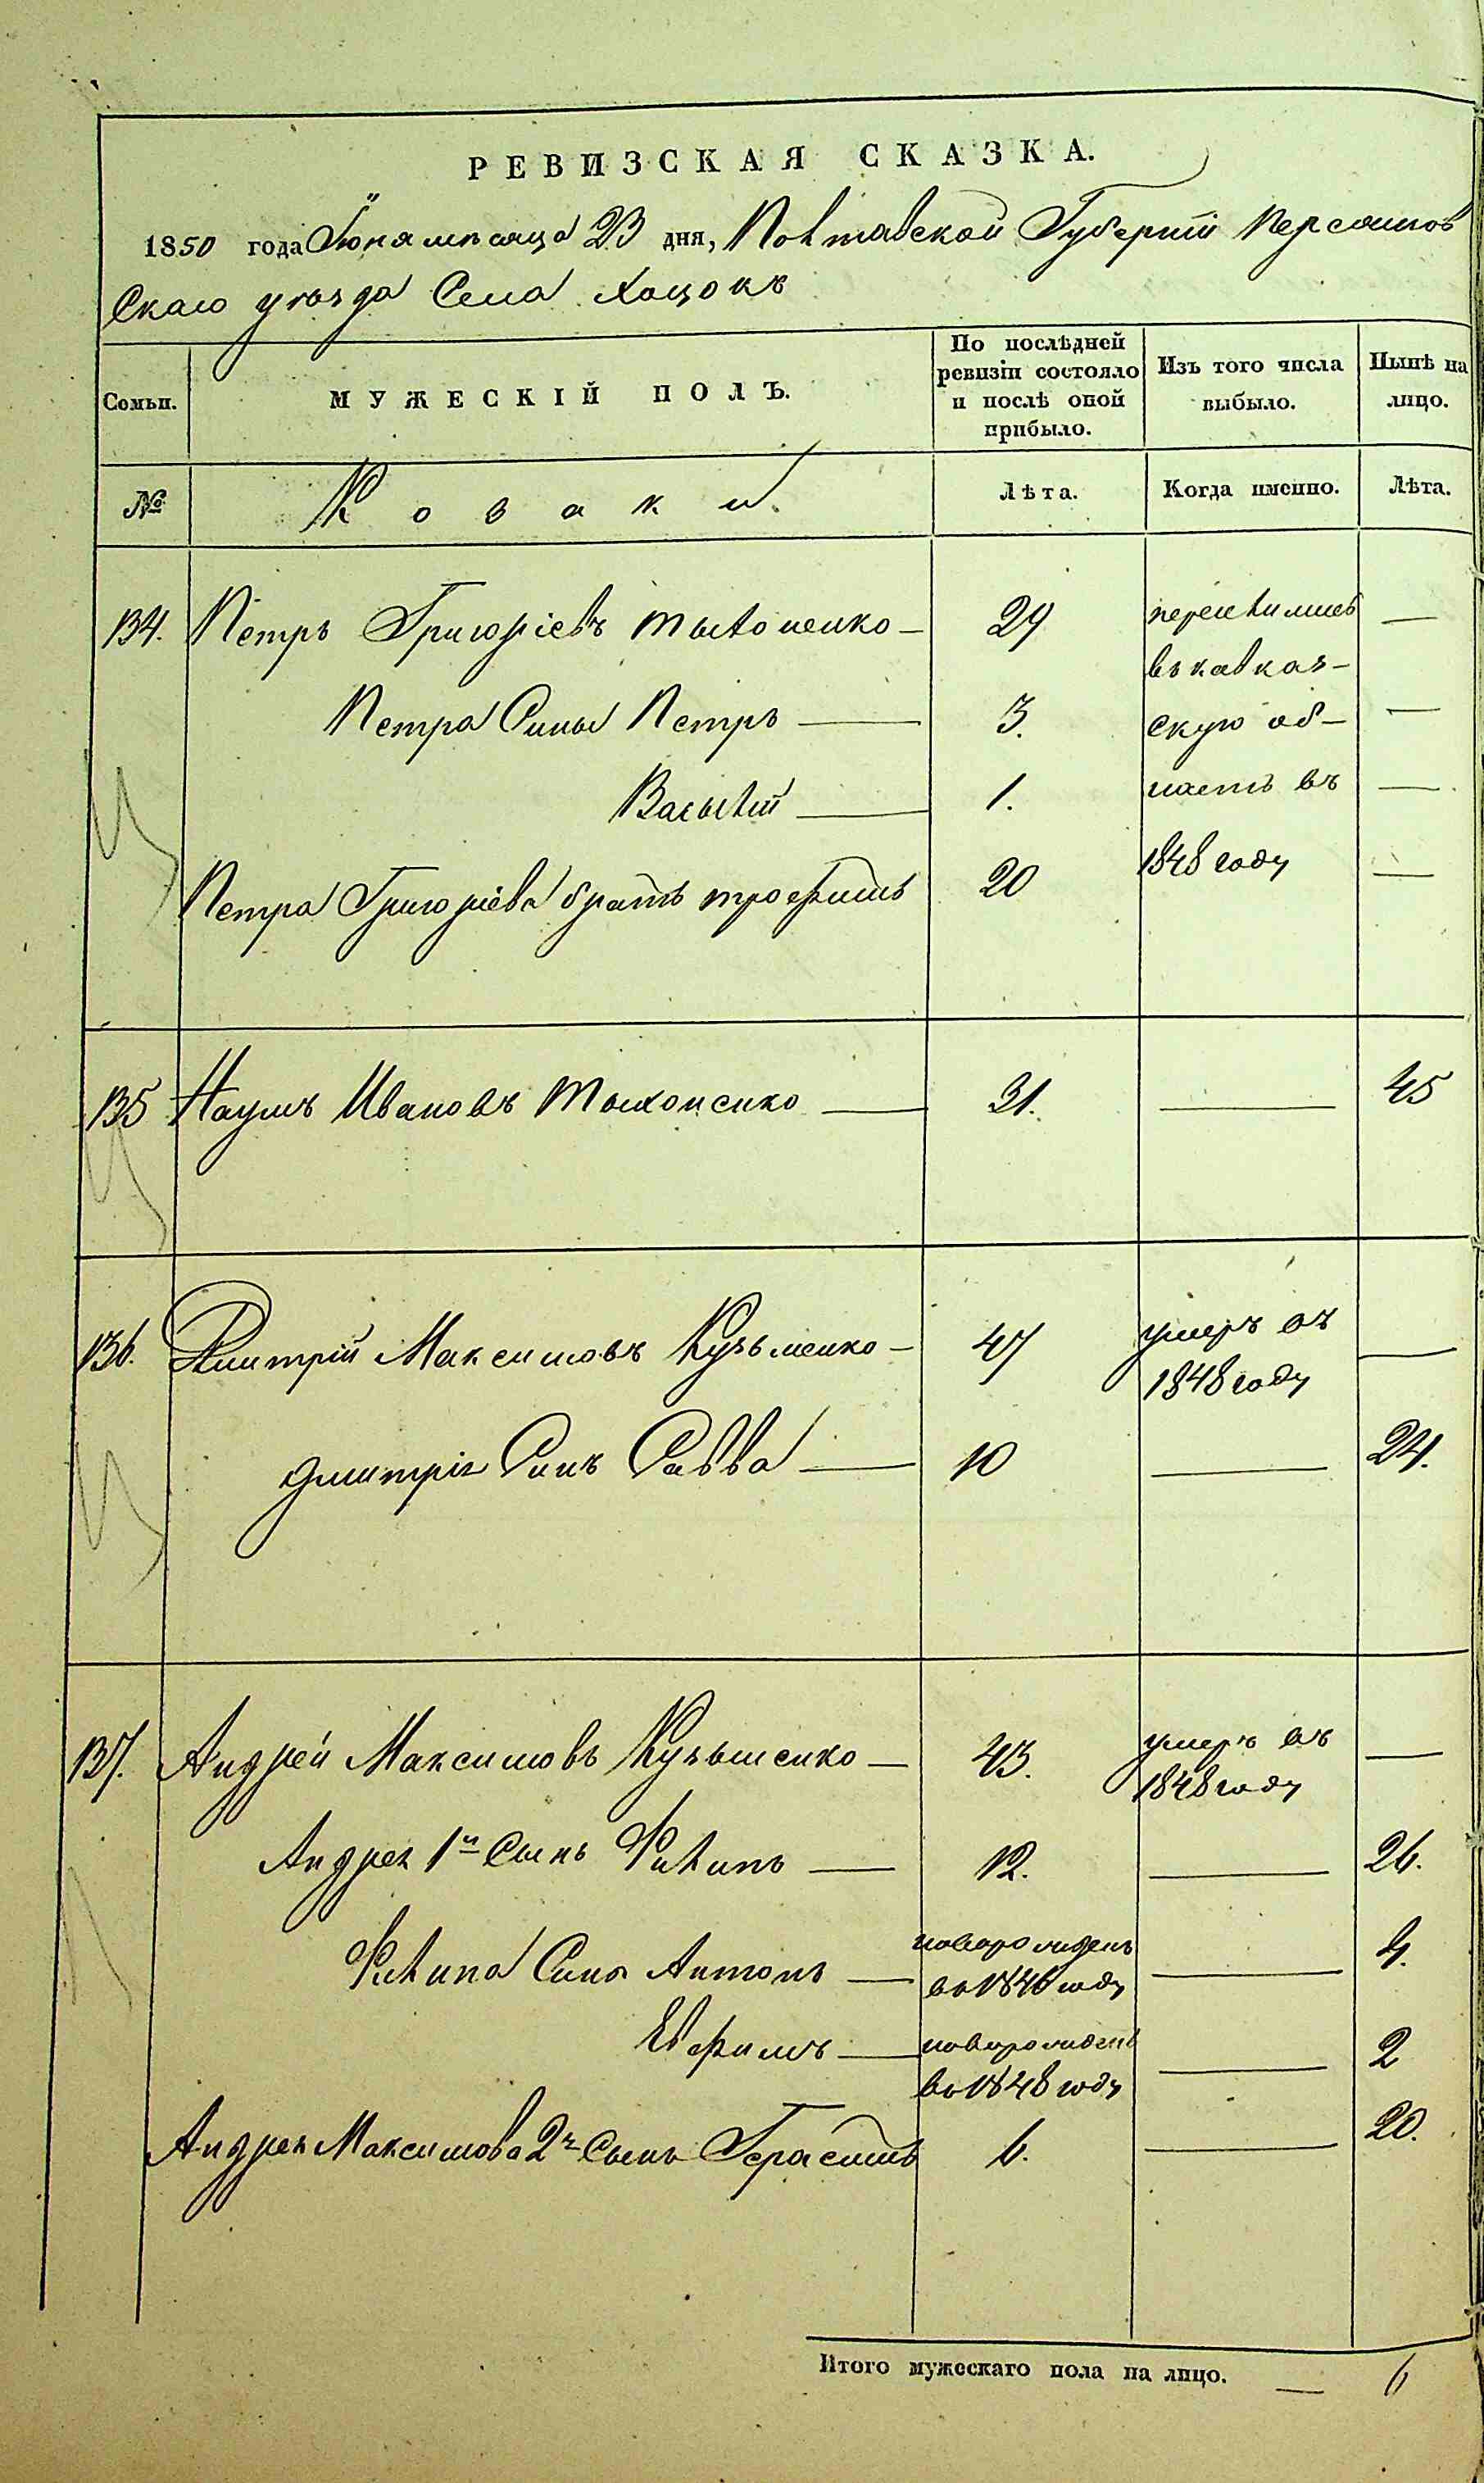 РЕВИЗСКАЯ СКАЗКА.
1850 года Іюня мѣсяца 23 дня, Полтавской Губерніи Переяслов
Скаго уѣзда Села Хоцокъ
Семьи.
МУЖЕСКІЙ ПОЛЪ.
По послѣдней ревизіи состояло и послѣ оной прибыло.
Изъ того числа выбыло.
Нынѣ на лицо.
№
Козаки.
Лѣта.
Когда именно.
Лѣта.
134. Петръ Григоріевъ — 29 переселились —
въ кавказ-
Петра Сины Петръ — 3. скую об- —
Василій — 1. ласть въ —
1848 году
Петра Григоріева братъ трофимъ 20 —
135 Наумъ Ивановъ Тихоненко — 31. — 45
136. Дмитрій Максимовъ Кузьменко — 47 умеръ въ —
1848 году
Дмитрія Синъ Савва — 10 — 24.
137. Андрей Максимовъ Кузьменко — 43. умеръ въ —
1848 году
Андрея 1й Сынъ Филипъ — 12. — 26.
Филипа Сины Антонъ — новорожденъ — 4.
во 1846 году
Евфимъ — новорожденъ — 2
во 1848 году
Андрея Максимова 2й Сынъ Герасимъ 6. — 20.
Итого мужескаго пола на лицо. — 6